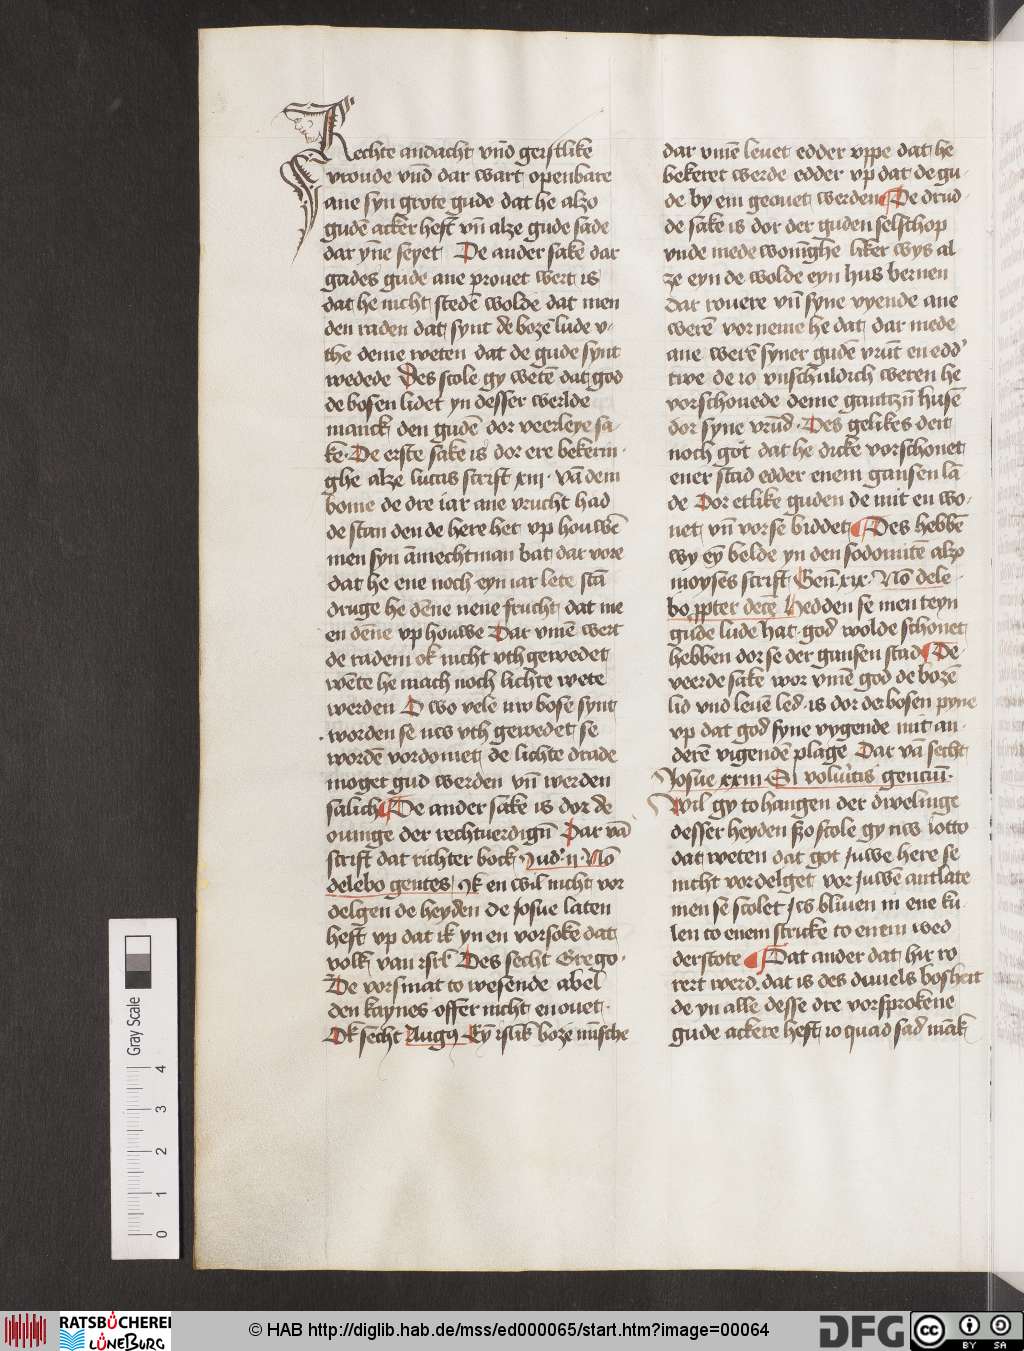 Rechte andacht vnd geystlike
vroude vnd dar wart openbare
ane syn grote gude dat he alzo
gudē acker heft vñ alze gude sade
dar yñe seyet De ander sake dar
gades gude ane prouet wert is
dat he nicht stedē wolde dat men
den raden dat synt de bozē lude v-
the deme weten dat de gude synt
wedede Des scole gy wetē dat god
de bosen lidet yn desser werlde
manck den gudē dor veerleye sa-
ke· De erste sake is dor ere bekerin-
ghe alze lucas scrift xiii· vā dem
bome de dre iar ane vrucht had
de stan den de here het vp houwē
men syn āmechtman bat dar vore
dat he ene noch eyn iar lete stā
druge he dēne nene frucht dat me
en dēne vp houwe Dar vmē wert
de radem ok nicht vth gewedet
wēte he mach noch lichte wete
werden O wo vele nw bose synt
worden se nws vth gewedet se
wordē vordomet de lichte drade
moget gud werden vñ werden
salich De ander sake is dor de
ouinge der rechtuerdigñ Dar vā
scrift dat richter bock Jud' ii· Nō
delebo gentes Ik en wil nicht vor
delgen de heyden de josue laten
heft vp dat ik yn en vorsoke dat
volk van isrl' Des secht Grego·
De vorsmat to wesende abel
den kaynes offer nicht en ouet·
Ok secht Augꝯ Eȳ islik boze mīsche
dar vmē leuet edder vppe dat he
bekeret werde edder vp dat de gu-
de by em geouet werden De drud-
de sake is dor der guden selschop
vnde mede wonīghe liker wys al
ze eyn de wolde eyn hus bernen
dar rouere vñ syne vyende ane
werē vor neme he dat dar mede
ane werē syner gudē vrūt en edd'
twe de io vnschuldich weren he
vorschonede deme gantzñ husē
dor syne vrūd· Des gelikes deit
noch got dat he dicke vorschonet
ener stad edder enem gansen lā
de Dor etlike guden de mit en wo-
net vñ vor se biddet Des hebbē
wy eȳ belde yn den sodomitē alzo
moyses scrift Genē xix· Nō dele-
bo ꝓpter decē Hedden se men teyn
gude lude hat god wolde schonet
hebben dor se der gansen stad De-
veerde sake wor vmē god de bozē
lid vnd leuē led· is dor der bosen pyne
vp dat god syne vygende mit an-
derē vigendē plage Dar vā secht
Josue xxiii Si voluitis genciū·
Wil gy to hangen der dwelinge
desser heyden szo scole gy nws iotto
dat weten dat got juwe here se
nicht vordelget vor juwē antlate
men se scolet jw bliuen in ene ku-
len to enem stricke to enem wed
derstote Dat ander dat hir ro
rert werd dat is des duuels bosheit
de yn alle desse dre vorsprokene
gude ackere heft io quad sad māk
0 1 2 3 4 Gray Scale
RATSBÜCHEREI
LÜNEBURG
© HAB http://diglib.hab.de/mss/ed000065/start.htm?image=00064
DFG
cc
BY SA